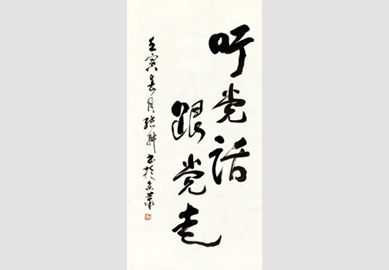 听党话
跟党走
壬寅春月张耕书于京华